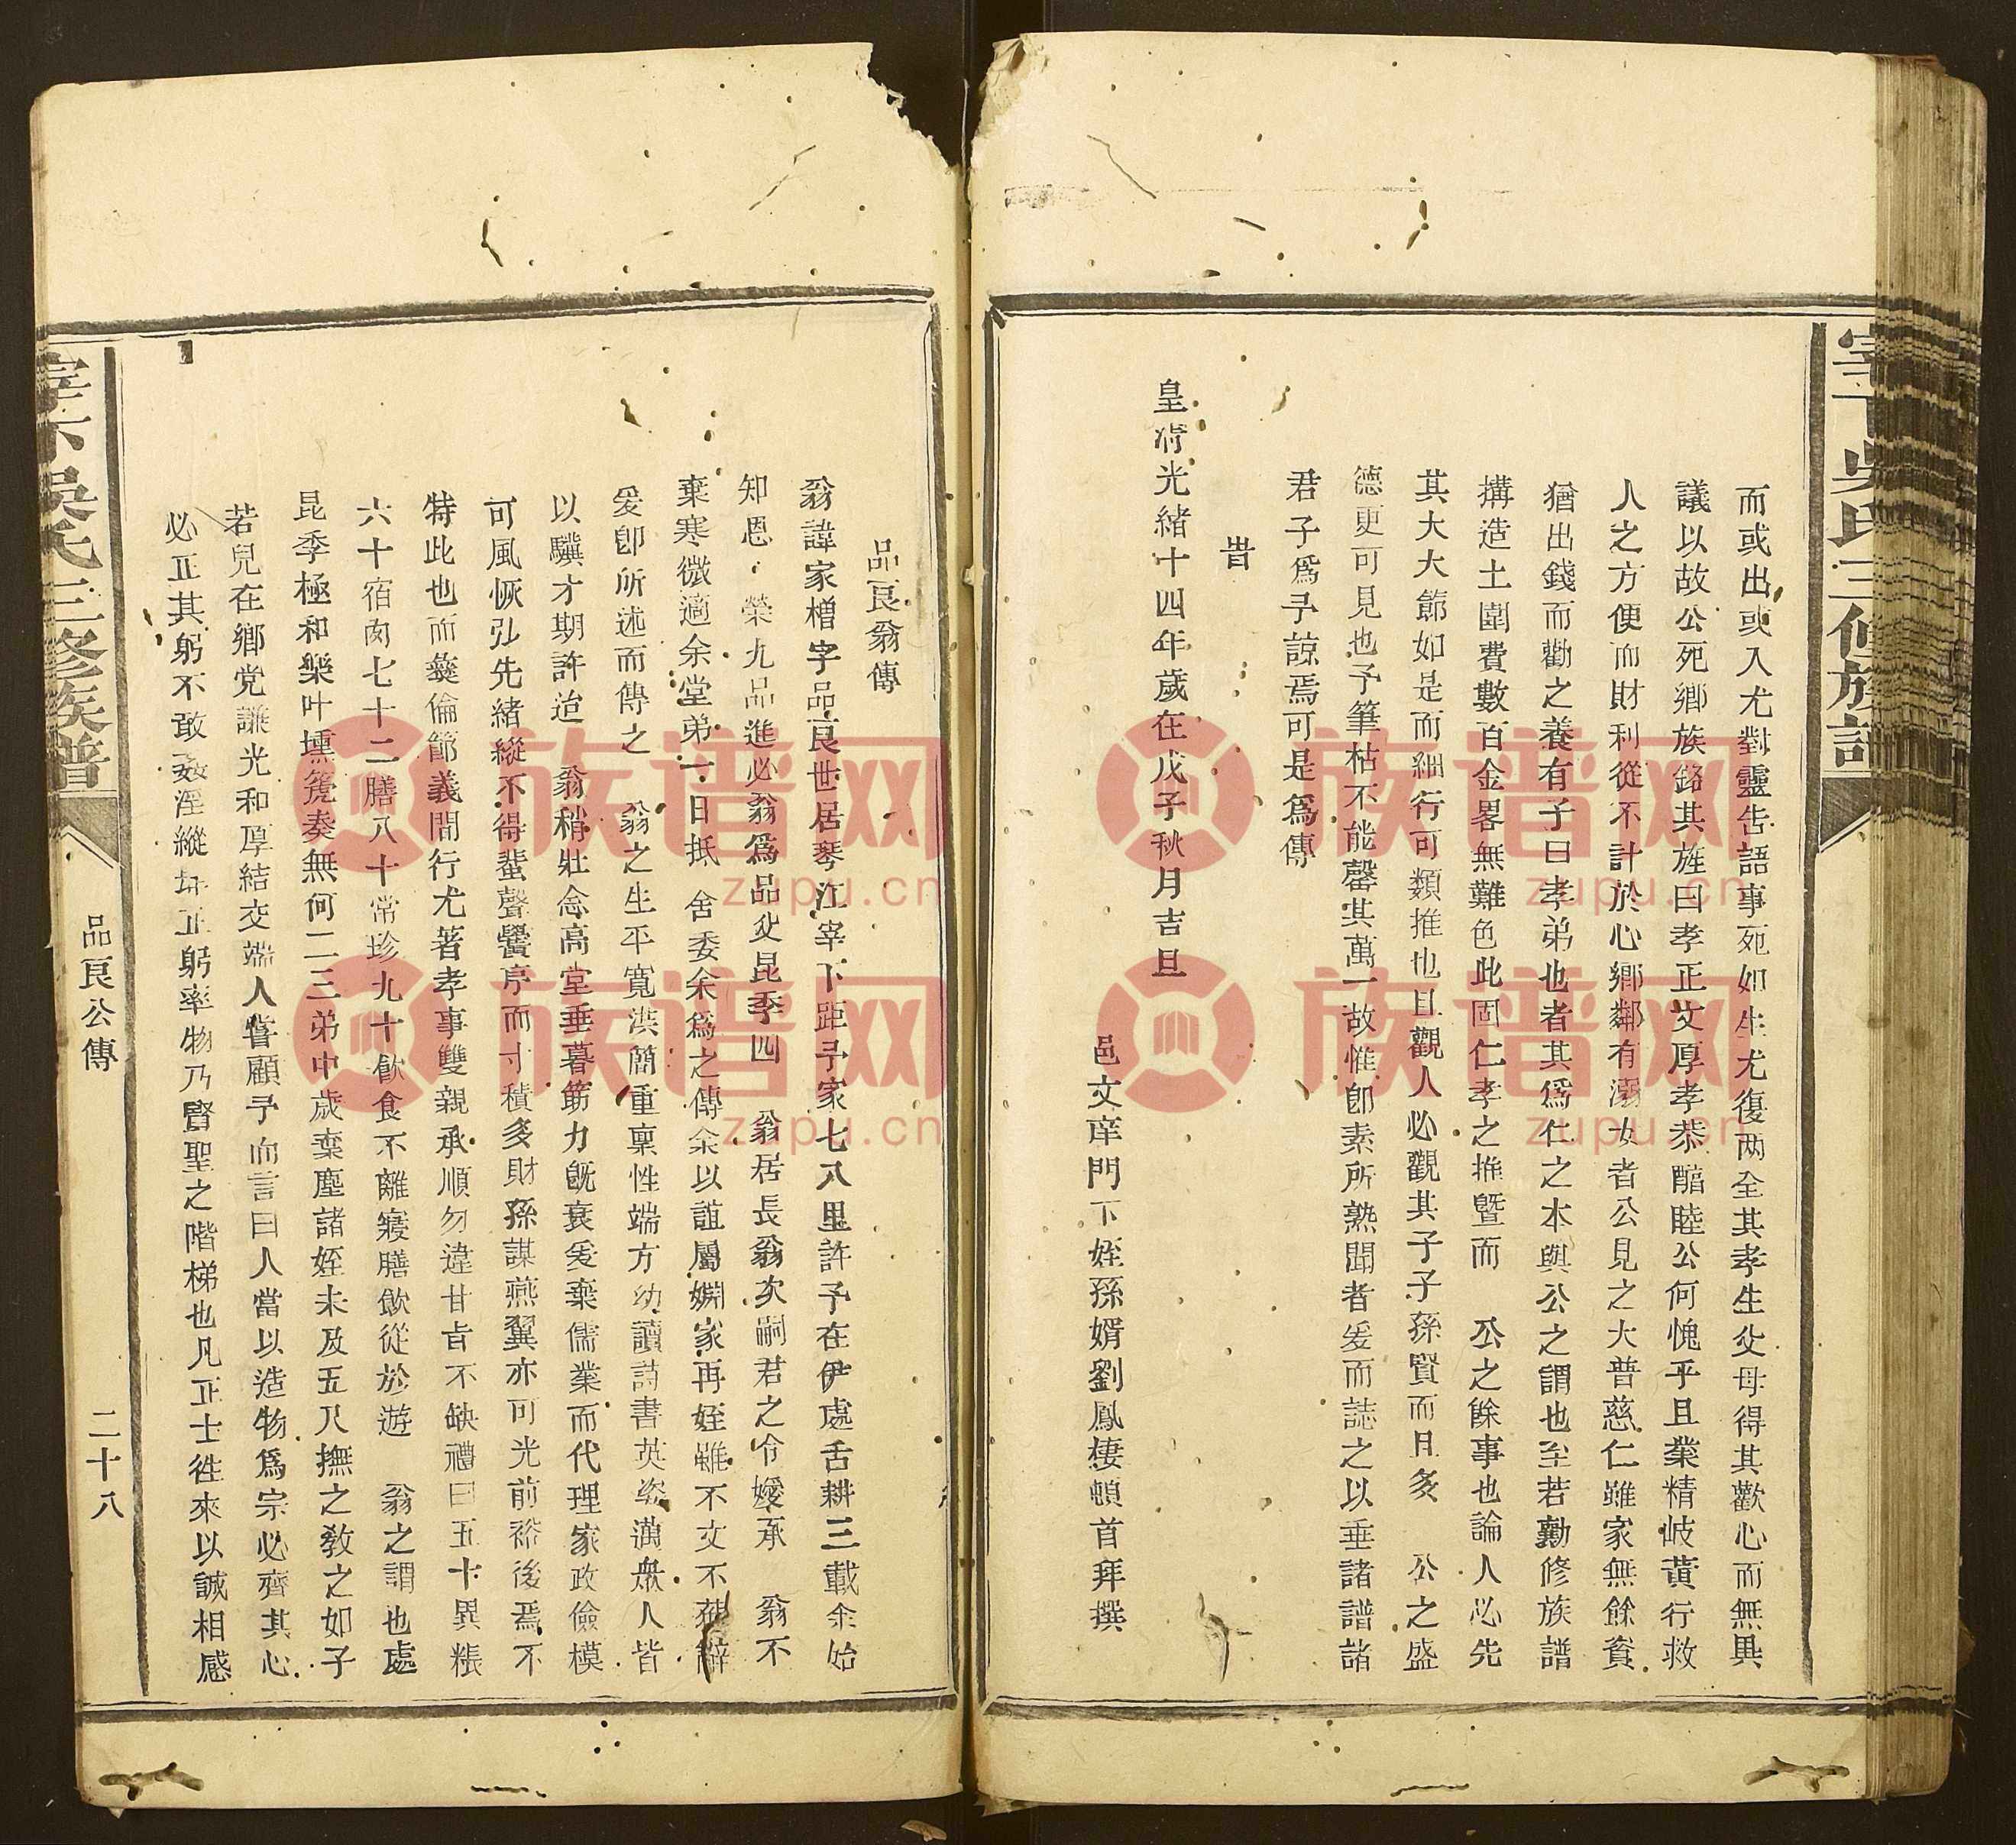 宰下吳氏三修族譜
而或出或入尤對靈告語事死如生尤復两全其孝生父母得其歡心而無異
議以故公死鄉族銘其旌曰孝正文厚孝恭醞睦公何愧乎且業精岐黃行救
人之方便而財利從不計於心鄉鄰有溺女者公見之大普慈仁雖家無餘資
猶出錢而勸之養有子曰孝弟也者其爲仁之本與公之謂也至若勷修族譜
搆造土圍費數百金畧無難色此固仁孝之推曁而　公之餘事也論人必先
其大大節如是而細行可類推也且觀人必觀其子子孫賢而且多　公之盛
德更可見也予筆枯不能罄其萬一故惟卽素所熟聞者爰而誌之以垂諸譜諸
君子爲予諒焉可是爲傳
旹
皇淸光緒十四年歲在戊子秋月吉旦
邑文庠門下姪孫婿劉鳳棲頓首拜撰
品良翁傳
翁諱家橧字品良世居琴江宰下距予家七八里許予在伊處舌耕三載余始
知恩榮九品進必翁爲品父昆季四　翁居長翁次嗣君之令嫒承　翁不
棄寒微適余堂弟一日抵　舍委余爲之傳余以誼屬婣家再姪雖不文不辭
爰卽所述而傳之　翁之生平寬洪簡重稟性端方幼讀詩書英姿邁衆人皆
以驥才期許迨　翁稍壯念高堂垂暮筯力既衰爰棄儒業而代理家政儉模
可風恢弘先緒縱不得蜚聲黌序而寸積多財孫謀燕翼亦可光前裕後焉不
特此也而彝倫節義間行尤著孝事雙親承順勿違甘旨不缺禮曰五十異粻
六十宿肉七十二膳八十常珍九十飮食不離寢膳飮從於遊　翁之謂也處
昆季極和樂叶壎箎奏無何二三弟中歲棄塵諸姪未及五尺撫之敎之如子
若兒在鄉党謙光和厚結交端人嘗顧予而言曰人當以造物爲宗必齊其心
必正其躬不敢姦淫縱正躬率物乃賢聖之階梯也凡正士徃來以誠相感
宰下吳氏三修族譜
品良公傳
二十八
族谱网
zupu.cn
族谱网
zupu.cn
族谱网
zupu.cn
族谱网
zupu.cn